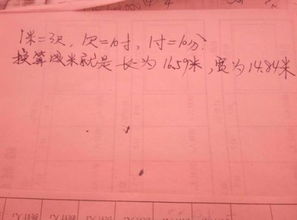 1米=3尺，1尺=10寸，1寸=10分。
换算成米就是长为16.59米，宽为14.84米